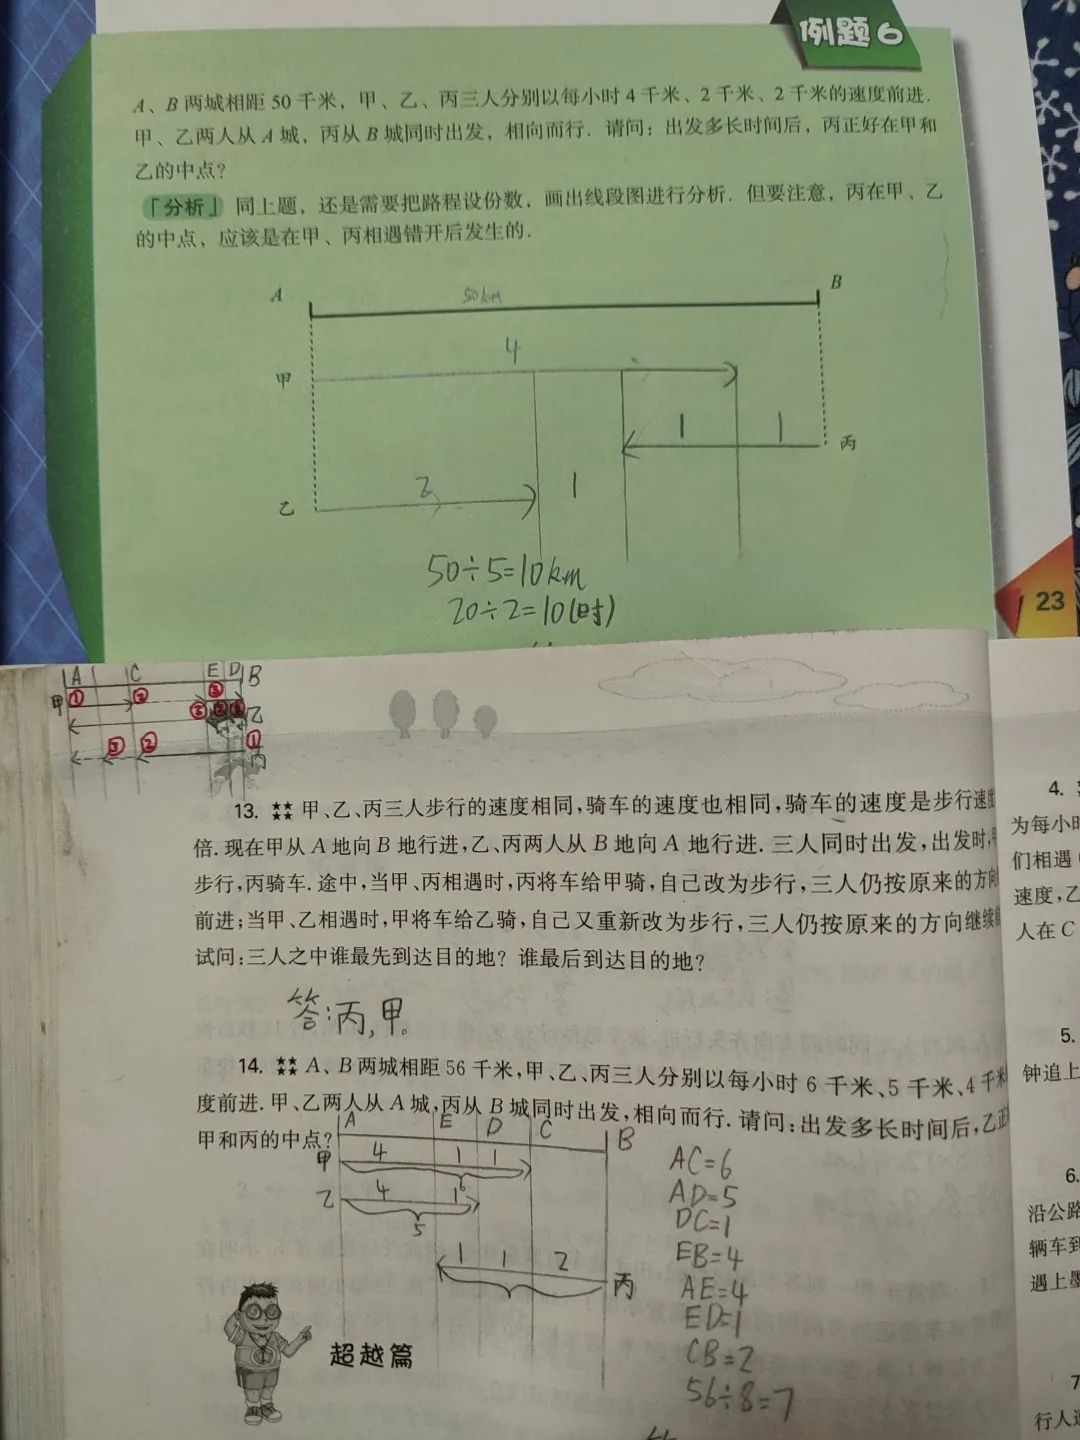 例题6
A、B两城相距50千米，甲、乙、丙三人分别以每小时4千米、2千米、2千米的速度前进．
甲、乙两人从A城，丙从B城同时出发，相向而行．请问：出发多长时间后，丙正好在甲和
乙的中点？
「分析」同上题，还是需要把路程设份数，画出线段图进行分析．但要注意，丙在甲、乙
的中点，应该是在甲、丙相遇错开后发生的．
A 50km B
4
甲
1 1 丙
乙 2 1
50÷5=10km
20÷2=10(时)
23
A C E D B
甲 ① ② ③
乙
③ ② ① 丙
13. ★★★★ 甲、乙、丙三人步行的速度相同,骑车的速度也相同,骑车的速度是步行速度
倍.现在甲从A地向B地行进,乙、丙两人从B地向A地行进.三人同时出发,出发时,
步行,丙骑车.途中,当甲、丙相遇时,丙将车给甲骑,自己改为步行,三人仍按原来的方向
前进;当甲、乙相遇时,甲将车给乙骑,自己又重新改为步行,三人仍按原来的方向继续
试问:三人之中谁最先到达目的地?谁最后到达目的地?
答:丙,甲。
14. ★★★★ A、B两城相距56千米,甲、乙、丙三人分别以每小时6千米、5千米、4千米
度前进.甲、乙两人从A城,丙从B城同时出发,相向而行.请问:出发多长时间后,乙正
甲和丙的中点?
A E D C B
甲 4 1 1
6
乙 4 1
5
1 1 2 丙
AC=6
AD=5
DC=1
EB=4
AE=4
ED=1
CB=2
56÷8=7
超越篇
4.
为每小时
们相遇
速度,乙
人在C
5.
钟追上
6.
沿公路
辆车到
遇上墨
7
行人